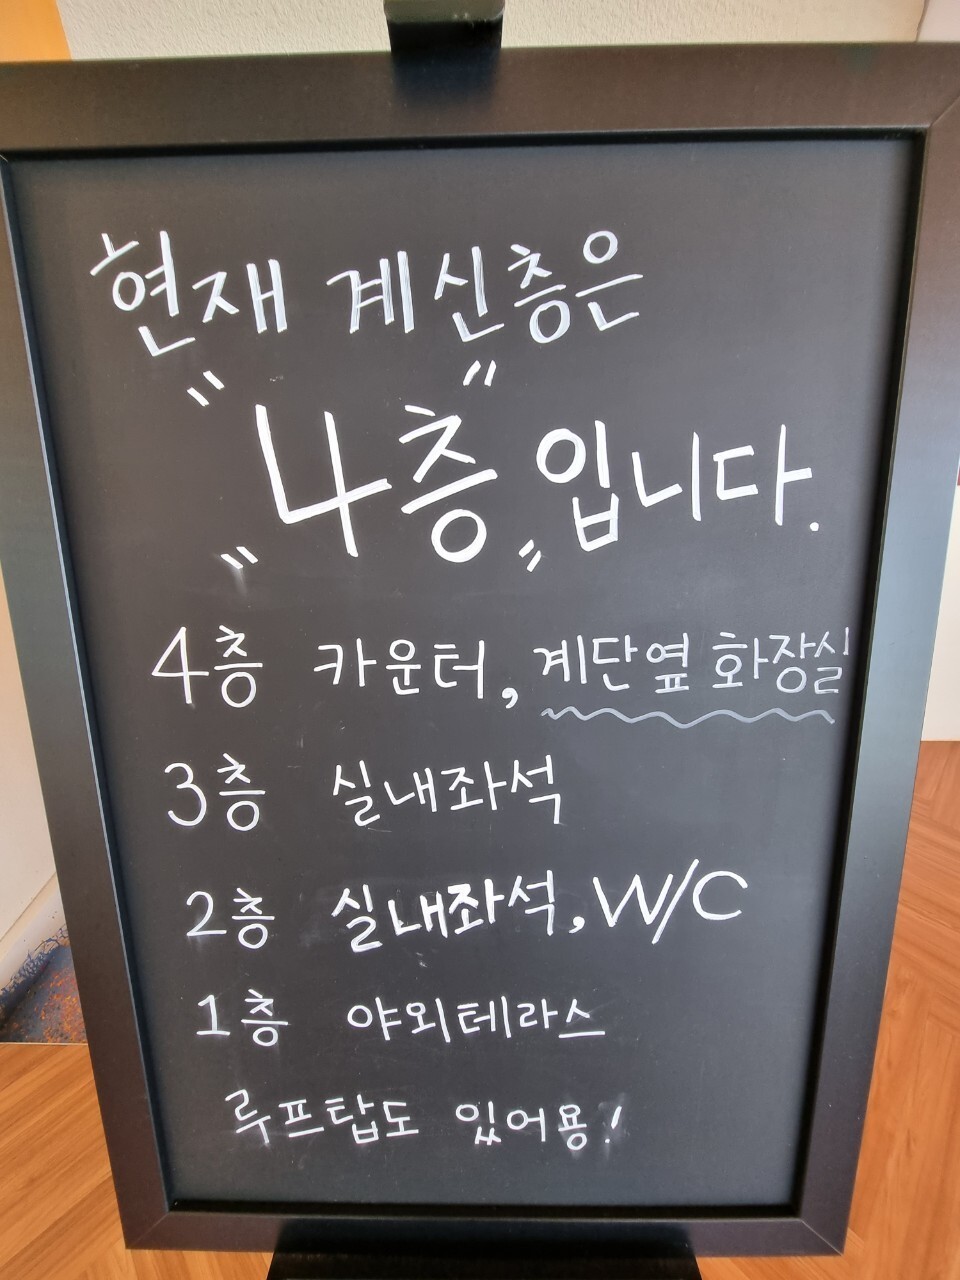 현재 계신층은
"4층" 입니다.
4층 카운터, 계단옆 화장실
3층 실내좌석
2층 실내좌석, W/C
1층 야외테라스
루프탑도 있어용!